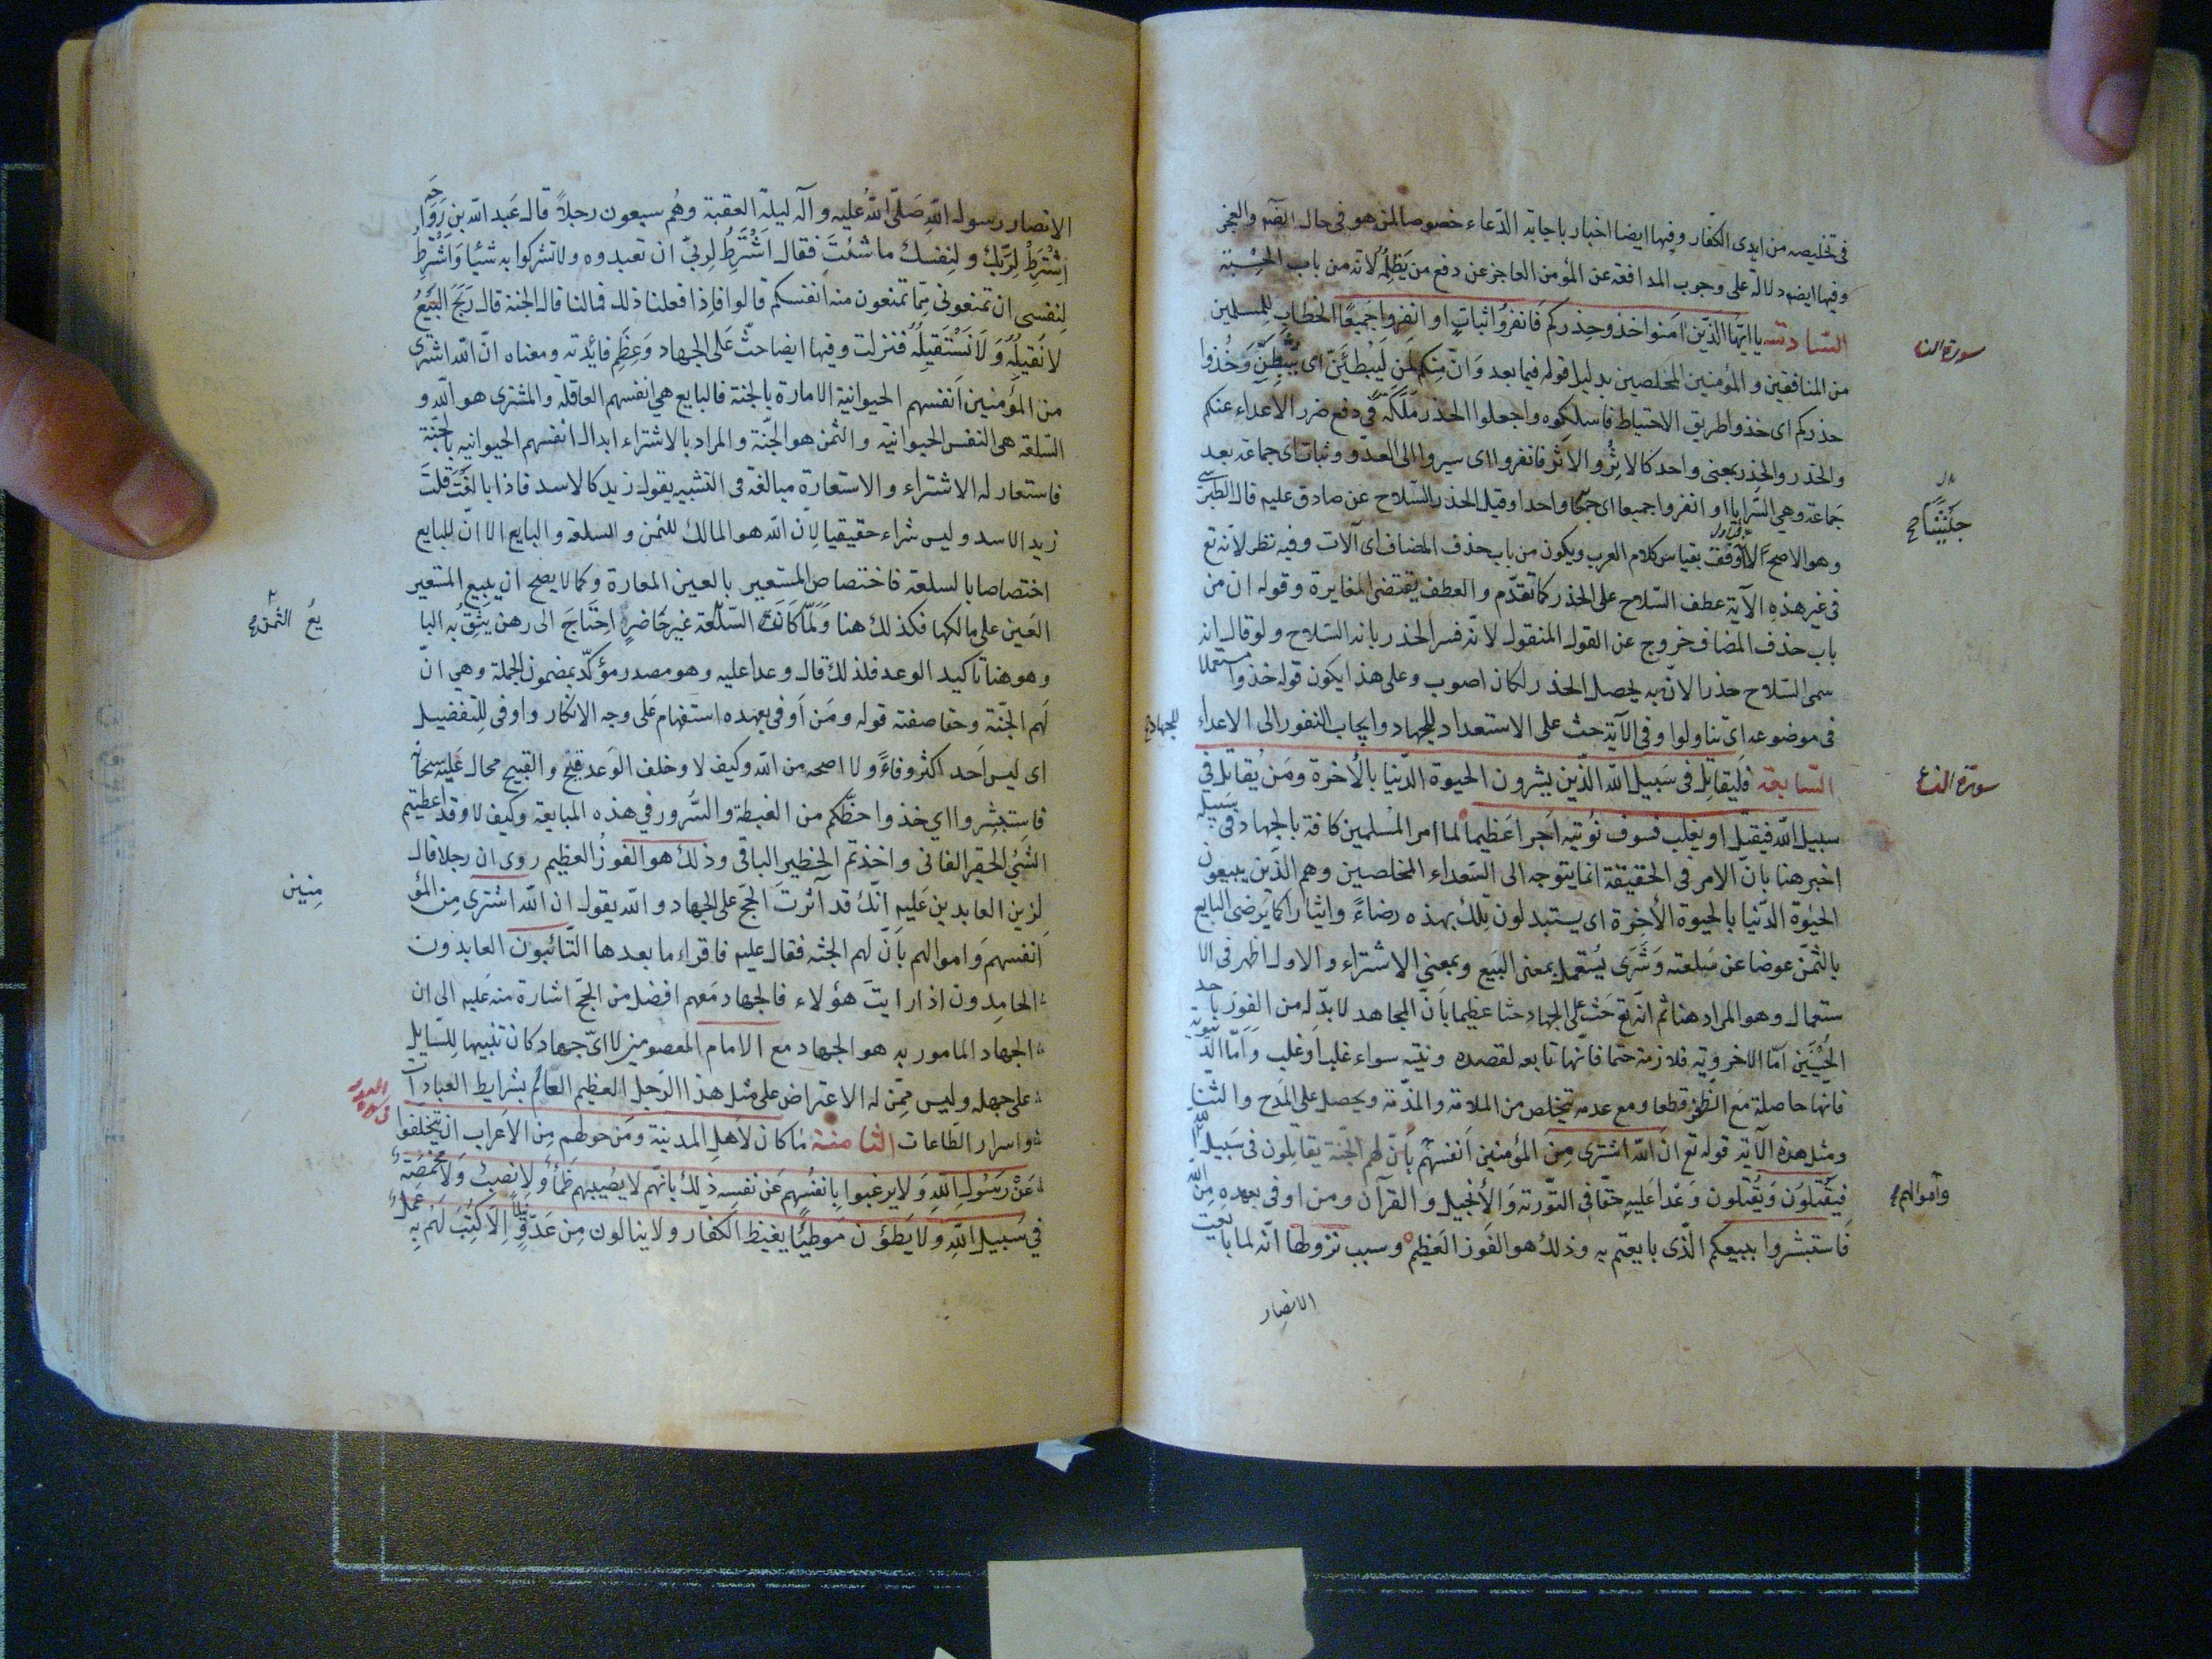 في تخليصه من ايدى الكفّار وفيها ايضا اخبار باجابة الدّعاء خصوصا لمن هو في حال الضّم والعجز
وفيها ايضا دلالة على وجوب المدافعة عن المؤمن العاجز عن دفع من يَظلِمُه لانّه من باب الحِسْبة
السّادسة يا ايّها الّذين امنوا خذوا حِذركم فَانفرُوا ثباتٍ او انفِروا جَميعًا الخطاب للمسلمين
سورة النسا
من المنافقين والمؤمنين المخلصين بدليل قوله فيما بعد وَانّ مِنكم لمَن لَيُبطئَنّ اى يثّبّطنَّ وَخُذوا
حذركم اى خذوا طريق الاحتياط فاسلكوه واجعلوا الحذر مَلَكَةً في دفع ضرر الاعداء عنكم
والحَذر والحِذر بمعنى واحد كالاِثْرِ والاَثَر فانفروا اى سيروا الى العدّو وثبات اى جماعة بعد
جَماعة وهي السّرايا او انفروا جميعا اى جمعًا واحدا وقيل الحذر السّلاح عن صادق عليه قال الطبرسى
وهو الاصح لانّه اوفق بقياس كلام العرب ويكون من باب حذف المضاف اى آلات وفيه نظر لانّه تع
في غير هذهِ الآية عطف السّلاح على الحذر كما تقدّم والعطف يقتضى المغايرة وقوله ان من
باب حذف المضاف خروج عن القول المنقول لانّه فسر الحذر بانه السّلاح ولو قال انه
سمى السّلاح حذرا لانّ به يحصل الحذر لكان اصوب وعلى هذا يكون قوله خذوا مستعملا
في موضوعه اى تناولوا وفي الآية حث على الاستعداد للجهاد وايجاب النفور الى الاعداء
للجهاد
السّابعة فَليقاتِل في سَبيل الله الذّين يشرون الحيوة الدّنيا بالأخرة ومَن يقاتل في
سبيل الله فيقتل او يغلب فسوف نؤتيه اَجرا عَظيما لما امر المسْلمين كافة بالجهاد في سبيله
اخبر هنا بانّ الامر في الحقيقة انما يتوجه الى السّعداء المخلصين وهم الّذين يبيعون
الحيوة الدّنيا بالحيوة الأخرة اى يستبدلون تِلك بهذه رضاءً وايثارا كما يَرضى البايع
بالثمّن عوضا عن سَلعته وَشَرى يُستعمل بمعنى البَيع وبمعنى الاشتراء والاول اظهر في الا
ستعمال وهو المراد هنا ثم انّه تع حَث على الجهاد حثا عظيما بأنّ المجاهد لا بدّ له من الفوز باحد
الحُسْنَيَين امّا الاخرويّه فلازمة حتما فانّها تابعه لقصده ونيّته سواء غلب او غلب وَامّا الدّنيويّه
فانها حاصلة مَع الظّفر قطعا ومع عدمه يتخلص من الملامة والمذّمة ويحصل على المَدح والثناء
ومثل هذه الآية قوله تع انّ الله اشترى مِن المؤمنين اَنفسهُم بأنّ لهم الجّنة يقاتِلون في سَبيل الله
وأموالهم
فيَقتُلوُن وَيُقتلون وَعْدا عَليهِ حقّا في التوّرية وَالأنجيل والقرآن ومن اوفى بعهده مِن الله
فَاستبشروا ببيعكم الّذى بايعتم به وذلك هو الفَوز العَظيم وسبب نزولها انّه لما بايعت
الانصار
الانصار رسول الله صَلّى اللهُ عليه وآله ليلة العقبة وهُم سبعون رجلاً قال عَبد الله بن رَوَاحَه
اِشْتَرِطْ لِرَبّك ولِنفسك ما شئتَ فقال اَشْتَرِطُ لِربىّ ان تعبدوه ولا تشركوا به شيئا وَاَشْتَرِطُ
لِنفسى ان تمنعونى مِمّا تمنعون منه اَنفسكم قالوا فاِذا فعلنا ذلك فمالنا قال الجنة قال رَبَحَ البَيْعُ
لا نُقيلُهُ وَلا نَسْتَقيلُه فنزلت وفيها ايضا حثّ عَلى الجهاد وَعِظَمِ فائدته ومعناه انّ الله اشترى
من المؤمنين اَنفسهم الحيوانية الامارة بالجنة فالبايع هي انفسهم العاقلة والمشترى هو الله و
السّلعة هى النفس الحيوانيّة والثمن هو الجنّة والمراد بالاشتراء ابدال انفسهم الحيوانيه بالجنّة
فاستعار له الاشتراء والاستعارة مبالغة في التشبيه يقول زيد كالاسد فاذا بالغتَ قلتَ
زيد الاسد وليس شراء حقيقيا لانّ الله هو المالك للثمن والسلعة والبايع الا انّ للبايع
اختصاصا بالسلعة فاختصاص المستعير بالعين المعارة وكما لا يصح ان يبيع المستعير
العَين على مالكها فكذلك هنا وَلمّا كانَت السّلعَة غيرَ حَاضرٍ احتَاجَ الى رهن يَثِقُ به البا
يعُ الثمن
وهو هنا تاكيد الوعد فلذلك قال وعدا عليه وهو مصدر مؤكّد بمضمون الجملة وهي انّ
لَهم الجّنة وحقا صفته قوله ومَن اَوفى بعهده استفهام عَلى وجه الانكار واوفى للتفضيل
اى ليس اَحد اكثر وفاءً ولا اصحه من الله وكيف لا وخلف الوَعد قبيح والقبيح محال عَليه سبحانه
فاستبشِروا اي خذوا حظّكم من الغبطة والسُّرور في هذه المبايعة وكيف لا وقد اعطيتم
الشّيئ الحقير الفانى واخذتم الخطير الباقى وذلك هو الفوزُ العظيم روى ان رجلا قال
لزين العابدين عَليه انّك قد آثرتَ الحَجّ على الجهاد والله يقول ان الله اشترى مِن المؤ
مِنين
اَنفسهم وَاموالهم بأنّ لهم الجنّه فقال عليه فاقراء ما بعدها التّائبون العابدون
الحامِدون اذا رايتَ هؤلاء فالجهاد مَعهم افضل من الحَجّ اشارة منه عَليه الى ان
الجهاد المامور به هو الجهاد مع الامام المعصوم لا اىّ جهاد كان تنبيها للسّايل
على جهله وليس ممّن له الاعتراض على مثل هذا الرّجل العظيم العالم بشرايط العبادات
واسرار الطّاعات الثامنة مَا كان لاهل المدينة ومَن حولهم مِن الاَعراب ان يتخلفوا
عَنْ رَسُولِ اللهِ وَلا يرغبوا بِانفُسِهم عَن نفسِه ذلِك بانّهم لا يصُيبهم ظَمأٌ ولا نصبٌ وَلا مَخمَصَةٌ
في سَبيل اللهِ ولا يَطؤن مَوطِئًا يَغيظ الكفار ولا ينالون مِن عَدّوٍ نيلاً إلاّ كُتِبَ لَهُم بِه عملٌ